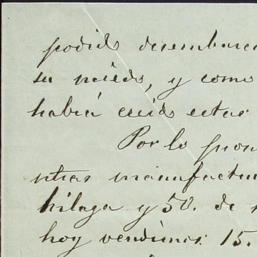 podido desembarca
su miedo, y como
habia caido estas
Por lo pron
ntras manufactu
hilaga y 50. de
hoy vendimos 15.